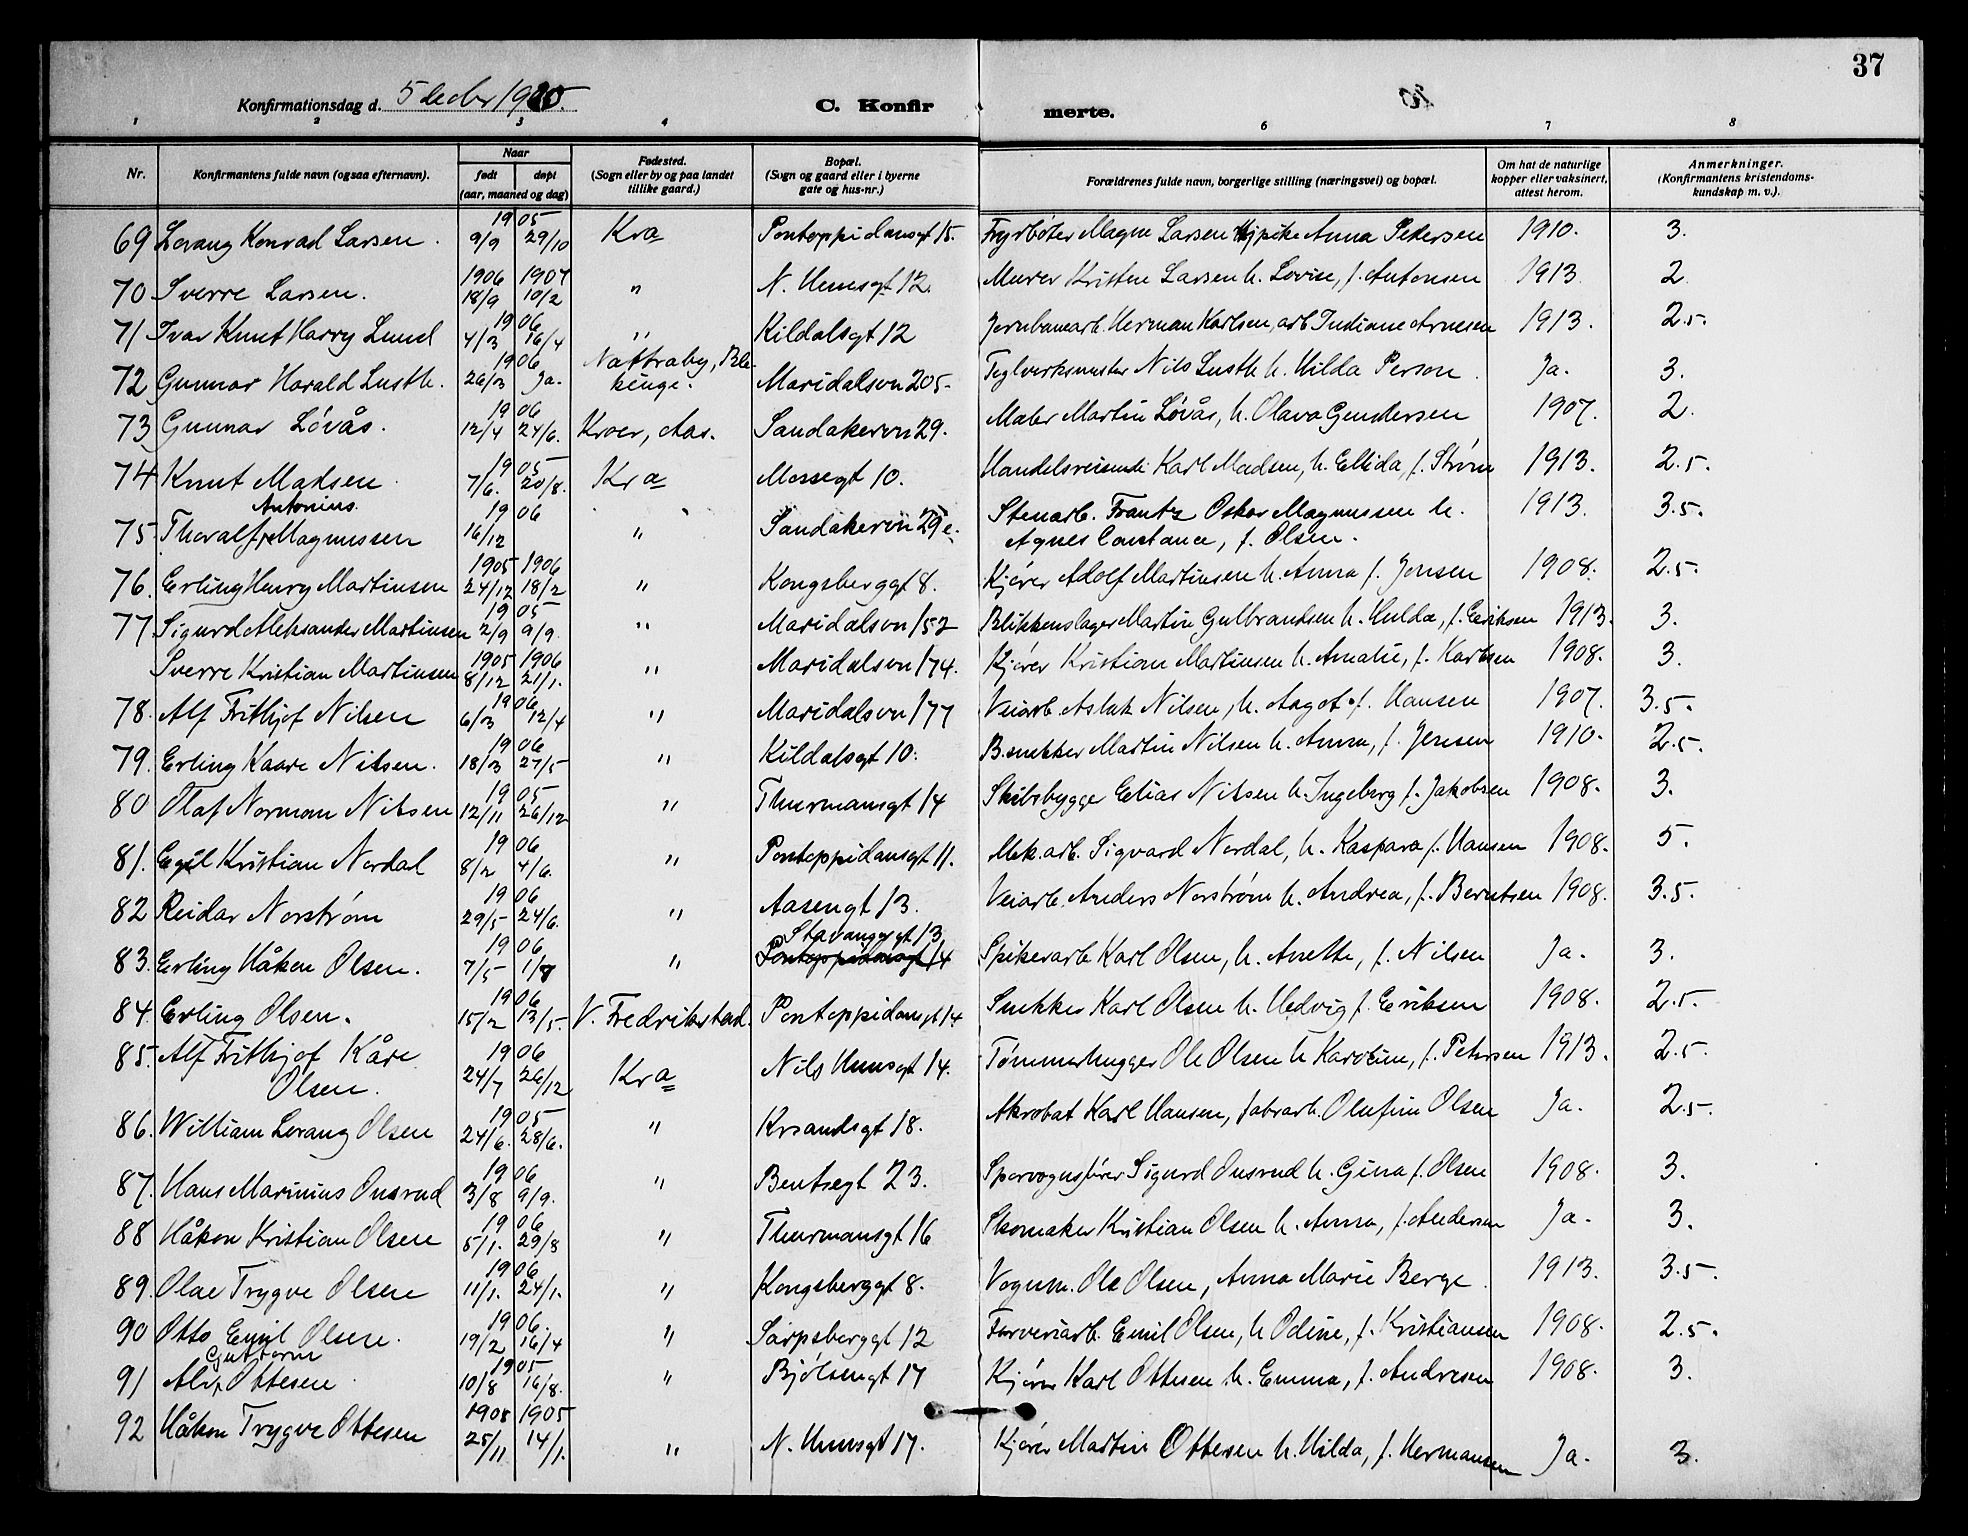 37
Konfirmationsdag d. 5 decbr 1920. C. Konfir merte.
1 2 3 4 6 7 8
Nr. Konfirmantens fulde navn (ogsaa efternavn). Naar født døpt (aar, maaned og dag) Fødested. (Sogn eller by og paa landet tillike gaard.) Bopæl. (Sogn og gaard eller i byerne gate og hus-nr.) Forældrenes fulde navn, borgerlige stilling (næringsvei) og bopæl. Om hat de naturlige kopper eller vaksinert, attest herom. Anmerkninger. (Konfirmantens kristendomskundskap m. v.).
69 Lorang Konrad Larsen. 1905 9/9 29/10 Kra Pontoppidansgt 15. Fyrbøter Magne Larsen pike Anna Pedersen 1910. 3.
70 Sverre Larsen. 1906 18/9 1907 10/2 " N. Huusgt 12. Murer Kristen Larsen h. Lovise, f. Antonsen 1913 2
71 Ivar Knut Harry Lund 1906 4/3 16/4 " Kildalsgt 12 Jernbanearb. Herman Karlsen, arb. Indiane Arnesen 1913. 2.5.
72 Gunnar Harald Lusth. 1906 26/3 Ja. Nattraby, Blekinge. Maridalsvn 205. Teglverksmester Nils Lusth h. Hilda Person. Ja. 3.
73 Gunnar Løvås. 1906 12/4 24/6. Kroer, Aas. Sandakervn 29. Maler Martin Løvås, h. Olava Gundersen 1907. 2.
74 Knut Madsen. 1905 7/6. 20/8. Kra Mossegt 10. Handelsreisende Karl Madsen, h. Ellida, f. Strøm 1913. 2.5.
75. Thoralf Antonius Magnussen 1906 16/12 " Sandakervn 29 e. Stenarb. Frantz Oskar Magnussen h. Agnes Constance, f. Olsen. 1913. 3.5.
76. Erling Henry Martinsen 1905 24/12 1906 18/2 " Kongsberggt 8. Kjører Adolf Martinsen h. Anna f. Jensen 1908. 2.5.
77 Sigurd Aleksander Martinsen 1905 2/9 9/9. " Maridalsvn 152 Blikkenslager Martin Gulbrandsen h. Hulda, f. Eriksen 1913. 3.
Sverre Kristian Martinsen 1905 8/12 1906 21/1. " Maridalsvn 174. Kjører Kristian Martinsen h. Amalie, f. Karlsen 1908. 3.
78. Alf Frithjof Nilsen 1906 6/3 12/4 " Maridalsvn 177 Veiarb. Aslak Nilsen, h. Aagot f. Hansen 1907. 3.5.
79. Erling Kaare Nilsen. 1906 18/3 27/5 " Kildalsgt 10. B.snekker Martin Nilsen h. Anna, f. Jensen 1910. 2.5.
80 Olaf Norman Nilsen 1905 12/11 26/12 " Thurmansgt 14 Skibsbygge Elias Nilsen h. Ingeborg f. Jakobsen 1908. 3.
81. Egil Kristian Nordal 1906 8/2 4/6. " Pontoppidansgt 11. Mek. arb. Sigvard Nordal, h. Kaspara f. Hansen 1908. 5.
82 Reidar Norstrøm 1906 29/5 24/6. " Aasengt 13. Veiarb. Anders Norstrøm h. Andrea, f. Berntsen 1908. 3.5.
83. Erling Håkon Olsen. 1906 7/5 1/7 " Stavangergt 13 Pontoppidansgt 14 Spikerarb. Karl Olsen, h. Anette, f. Nilsen Ja. 3.
84. Erling Olsen. 1906 15/2 13/5. V. Fredrikstad. Pontoppidansgt 14 Snekker Karl Olsen h. Hedvig f. Eriksen 1908. 2.5.
85. Alf Frithjof Kåre Olsen. 1906 24/7 26/12 Kra Nils Huusgt 14. Tømmerhugger Ole Olsen h. Karoline, f. Petersen 1913. 2.5.
86. William Lorang Olsen 1905 24/6. 28/6. " Krsandsgt 18. Akrobat Karl Hansen, fabrarb. Olufine Olsen Ja. 2.5.
87. Hans Marinius Onsrud 1906 3/8 9/9. " Bentsegt 23. Sporvognsfører Sigurd Onsrud h. Gina f. Olsen 1908. 3.
88 Håkon Kristian Olsen 1906 5/1. 29/8 " Thurmansgt 16 Skomaker Kristian Olsen h. Anna, f. Andersen Ja. 3.
89. Olae Trygve Olsen 1906 11/1. 24/1. " Kongsberggt 8. Vognm. Ole Olsen, Anna Marie Berge. 1913. 3.5.
90 Otto Emil Olsen. 1906. 19/2 16/4 " Sarpsborggt 12 Farveriarb. Emil Olsen, h. Odine, f. Kristiansen 1908. 2.5.
91 Alv Guttorm Ottesen. 1905 10/8 16/8. " Bjølsengt 17 Kjører Karl Ottesen h. Emma, f. Andresen 1908. 3.
92 Håkon Trygve Ottesen 1905 25/11 1905 14/1. " N. Huusgt 17. Kjører Martin Ottesen h. Hilda, f. Hermansen Ja. 3.